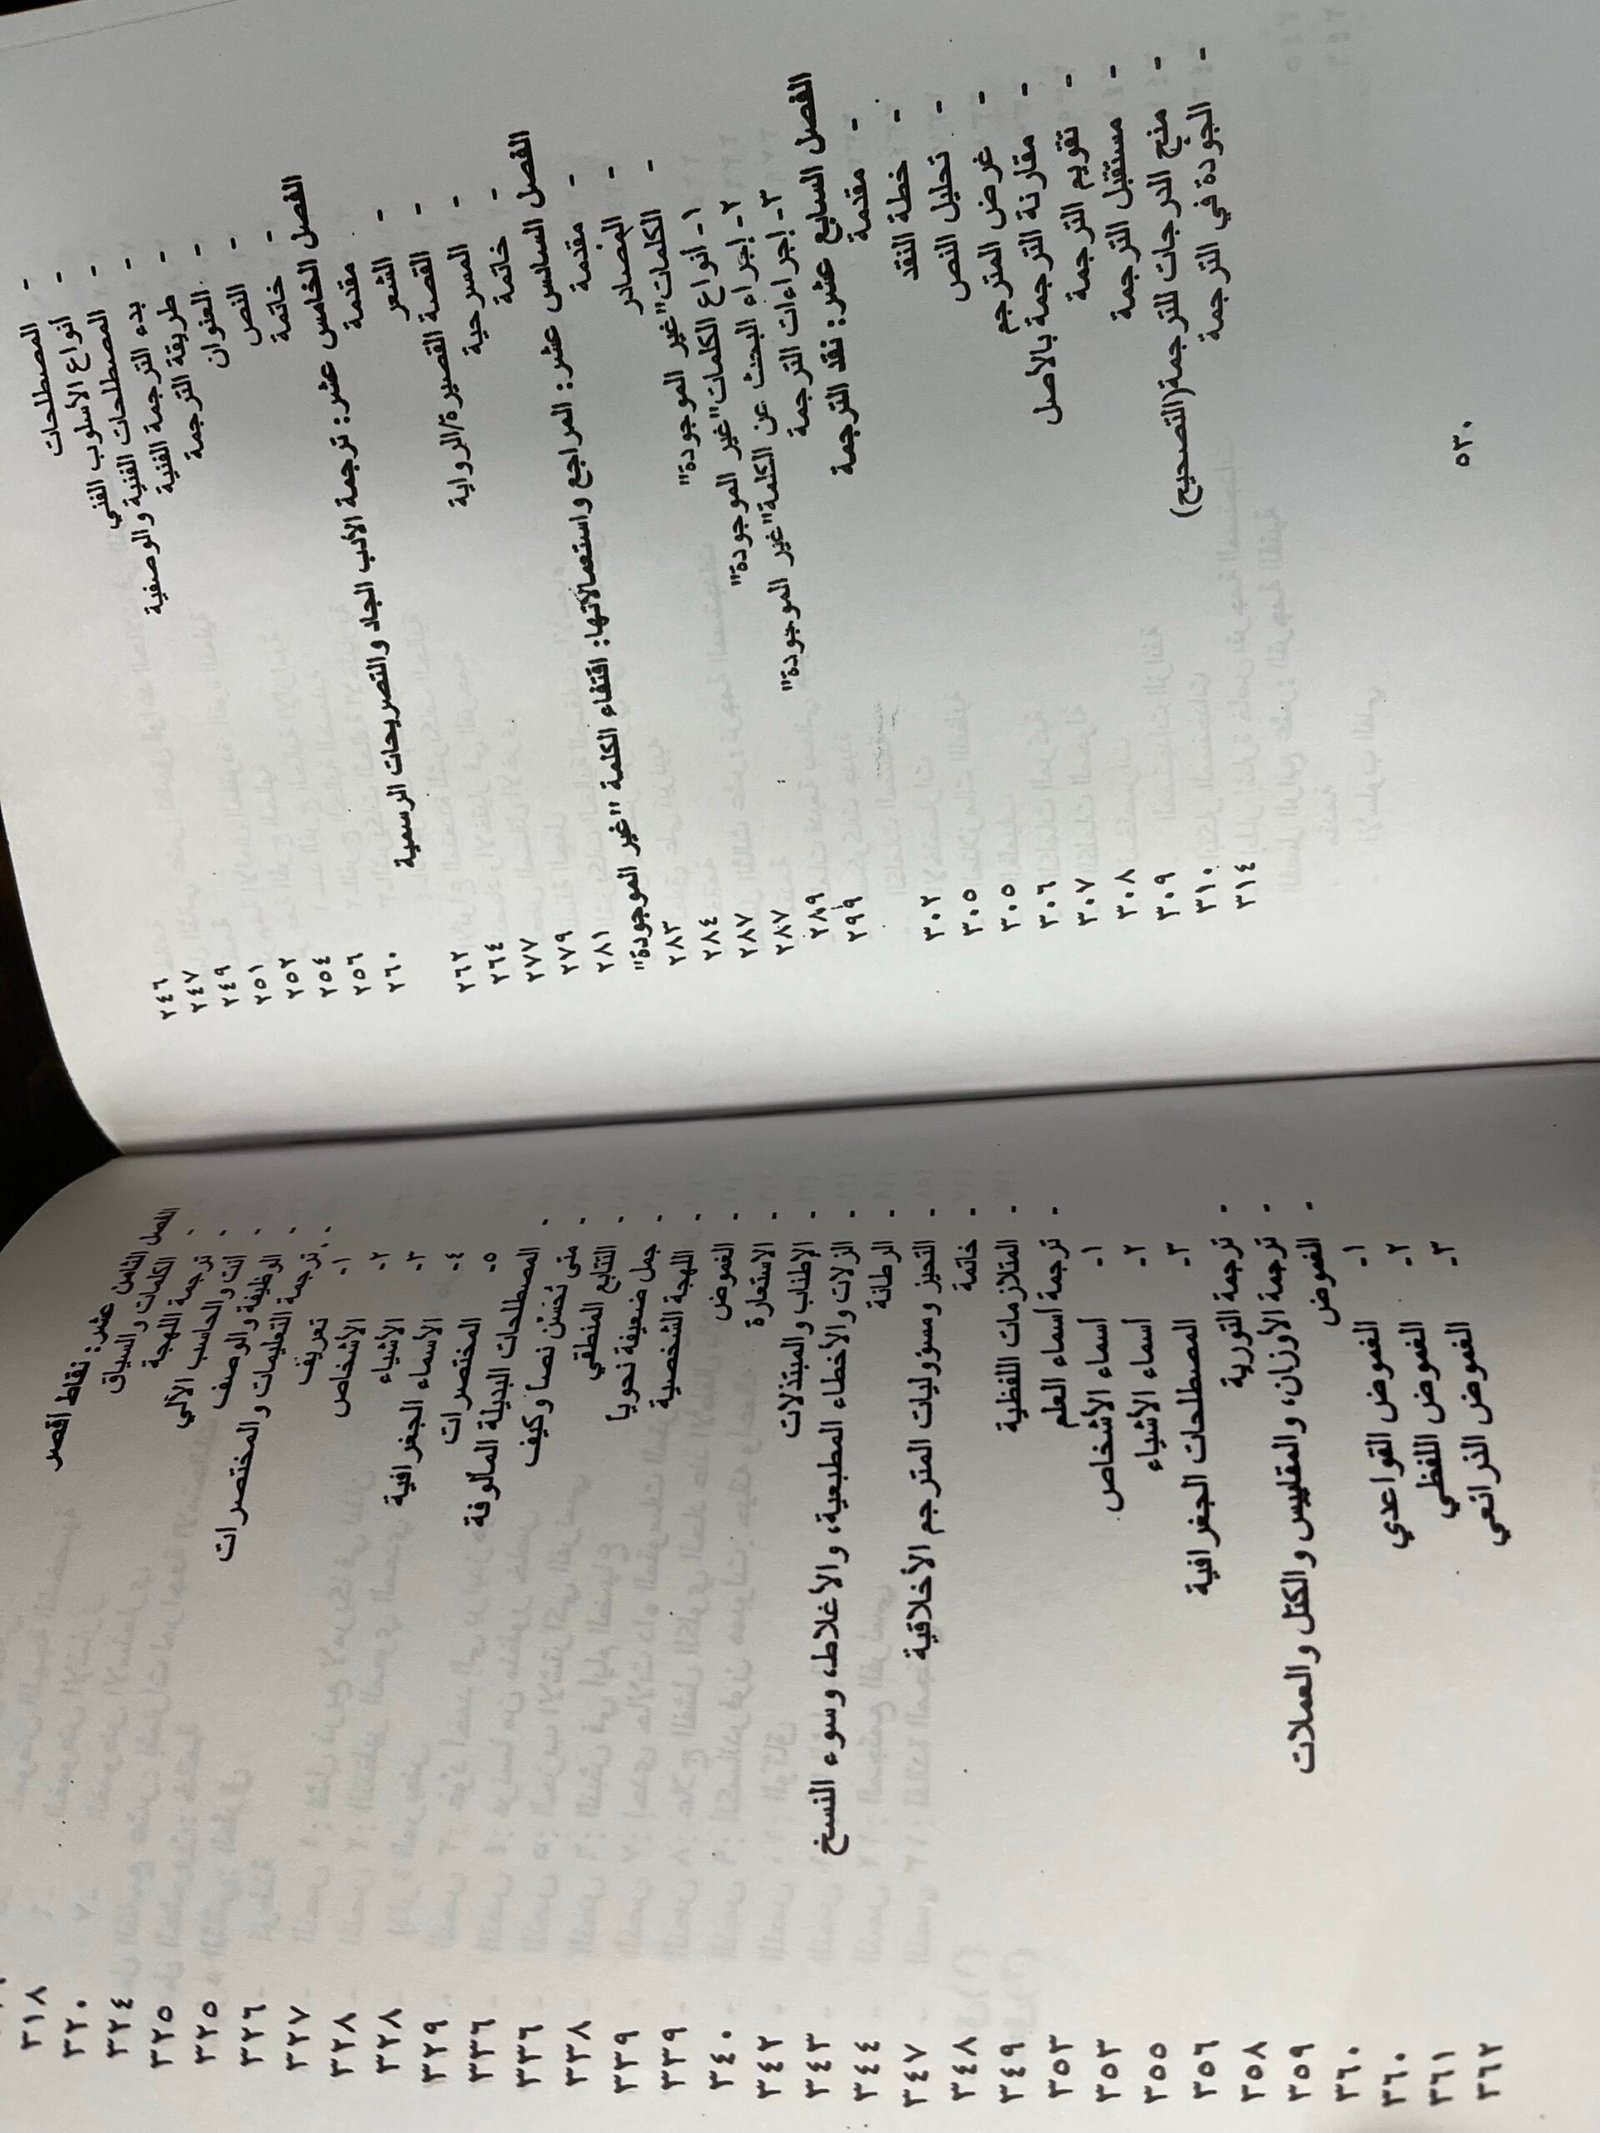 - المصطلحات ٢٤٦
- أنواع الأسلوب الفني ٢٤٧
- المصطلحات الفنية والوصفية ٢٤٩
- بدء الترجمة الفنية ٢٥١
- طريقة الترجمة ٢٥٢
- العنوان ٢٥٤
- النص ٢٥٦
- خاتمة ٢٦٠
الفصل الخامس عشر: ترجمة الأدب الجاد والتصريحات الرسمية
- مقدمة ٢٦٢
- الشعر ٢٦٤
- القصة القصيرة/الرواية ٢٧٧
- المسرحية ٢٧٩
- خاتمة ٢٨١
الفصل السادس عشر: المراجع واستعمالاتها: اقتفاء الكلمة "غير الموجودة"
- مقدمة ٢٨٣
- المصادر ٢٨٤
- الكلمات"غير الموجودة" ٢٨٧
١- أنواع الكلمات"غير الموجودة" ٢٨٧
٢- إجراء البحث عن الكلمة"غير الموجودة" ٢٨٩
٣- إجراءات الترجمة ٢٩٩
الفصل السابع عشر: نقد الترجمة
- مقدمة ٣٠٢
- خطة النقد ٣٠٥
- تحليل النص ٣٠٥
- غرض المترجم ٣٠٦
- مقارنة الترجمة بالأصل ٣٠٧
- تقويم الترجمة ٣٠٨
- مستقبل الترجمة ٣٠٩
- منح الدرجات للترجمة(التصحيح) ٣١٠
- الجودة في الترجمة ٣١٤
٥٣٠
الفصل الثامن عشر: نقاط أقصر
- الكلمات والسياق
- ترجمة اللهجة ٣١٨
- أنت والحاسب الآلي ٣٢٠
- الوظيفة والوصف ٣٢٤
- ترجمة التعليمات والمختصرات ٣٢٥
١- تعريف ٣٢٥
٢- الأشخاص ٣٢٦
٣- الأشياء ٣٢٧
٤- الأسماء الجغرافية ٣٢٨
٥- المختصرات ٣٢٨
- المصطلحات البديلة المألوفة ٣٢٩
- متى نُحَسّن نصاً وكيف ٣٣٦
- التتابع المنطقي ٣٣٦
- جمل ضعيفة نحوياً ٣٣٨
- اللهجة الشخصية ٣٣٩
- الغموض ٣٣٩
- الاستعارة ٣٤٠
- الإطناب والمبتذلات ٣٤٢
- الزلات والأخطاء المطبعية، والأغلاط، وسوء النسخ ٣٤٣
- الرطانة ٣٤٤
- التحيز ومسؤوليات المترجم الأخلاقية ٣٤٧
- خاتمة ٣٤٨
- المتلازمات اللفظية ٣٤٩
- ترجمة أسماء العلم ٣٥٣
١- أسماء الأشخاص ٣٥٣
٢- أسماء الأشياء ٣٥٥
٣- المصطلحات الجغرافية ٣٥٦
- ترجمة التورية ٣٥٨
- ترجمة الأوزان، والمقاييس والكتل والعملات ٣٥٩
- الغموض ٣٦٠
١- الغموض القواعدي ٣٦٠
٢- الغموض اللفظي ٣٦١
٣- الغموض الذرائعي ٣٦٢